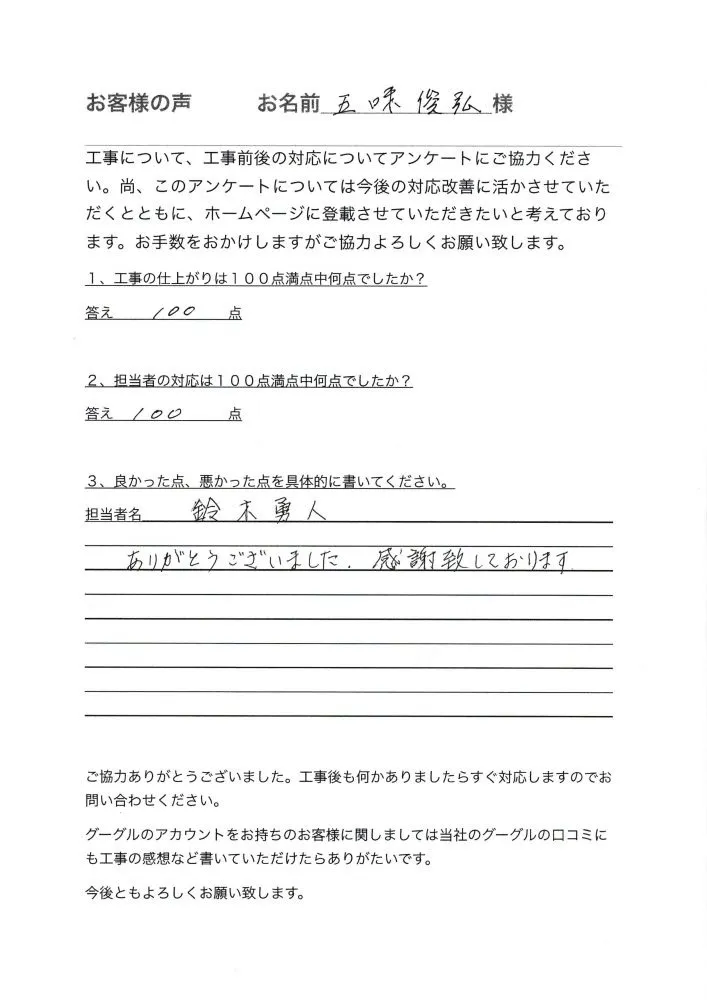 お客様の声 お名前 五味俊弘 様
工事について、工事前後の対応についてアンケートにご協力くださ
い。尚、このアンケートについては今後の対応改善に活かさせていた
だくとともに、ホームページに登載させていただきたいと考えており
ます。お手数をおかけしますがご協力よろしくお願い致します。
1、工事の仕上がりは100点満点中何点でしたか？
答え 100 点
2、担当者の対応は100点満点中何点でしたか？
答え 100 点
3、良かった点、悪かった点を具体的に書いてください。
担当者名 鈴木勇人
ありがとうございました. 感謝致しております.
ご協力ありがとうございました。工事後も何かありましたらすぐ対応しますのでお
問い合わせください。
グーグルのアカウントをお持ちのお客様に関しましては当社のグーグルの口コミに
も工事の感想など書いていただけたらありがたいです。
今後ともよろしくお願い致します。